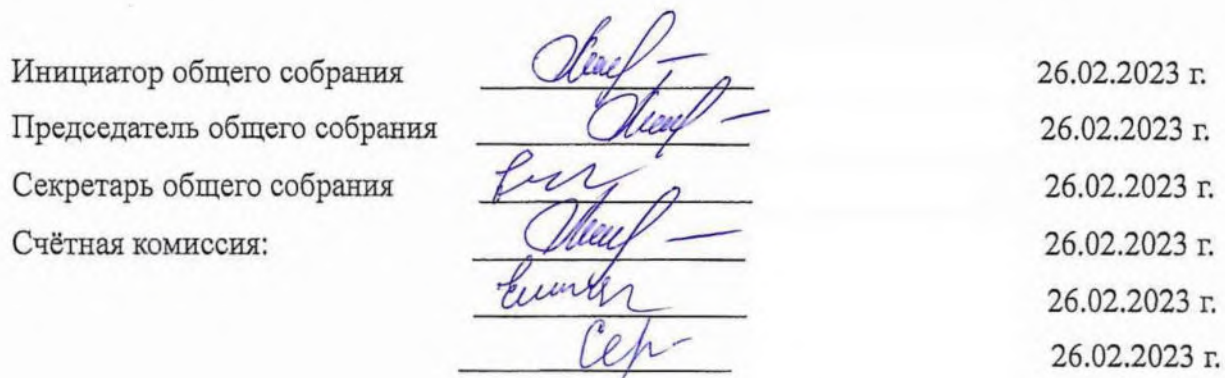 Инициатор общего собрания 26.02.2023 г.
Председатель общего собрания 26.02.2023 г.
Секретарь общего собрания 26.02.2023 г.
Счётная комиссия: 26.02.2023 г.
26.02.2023 г.
Сер 26.02.2023 г.